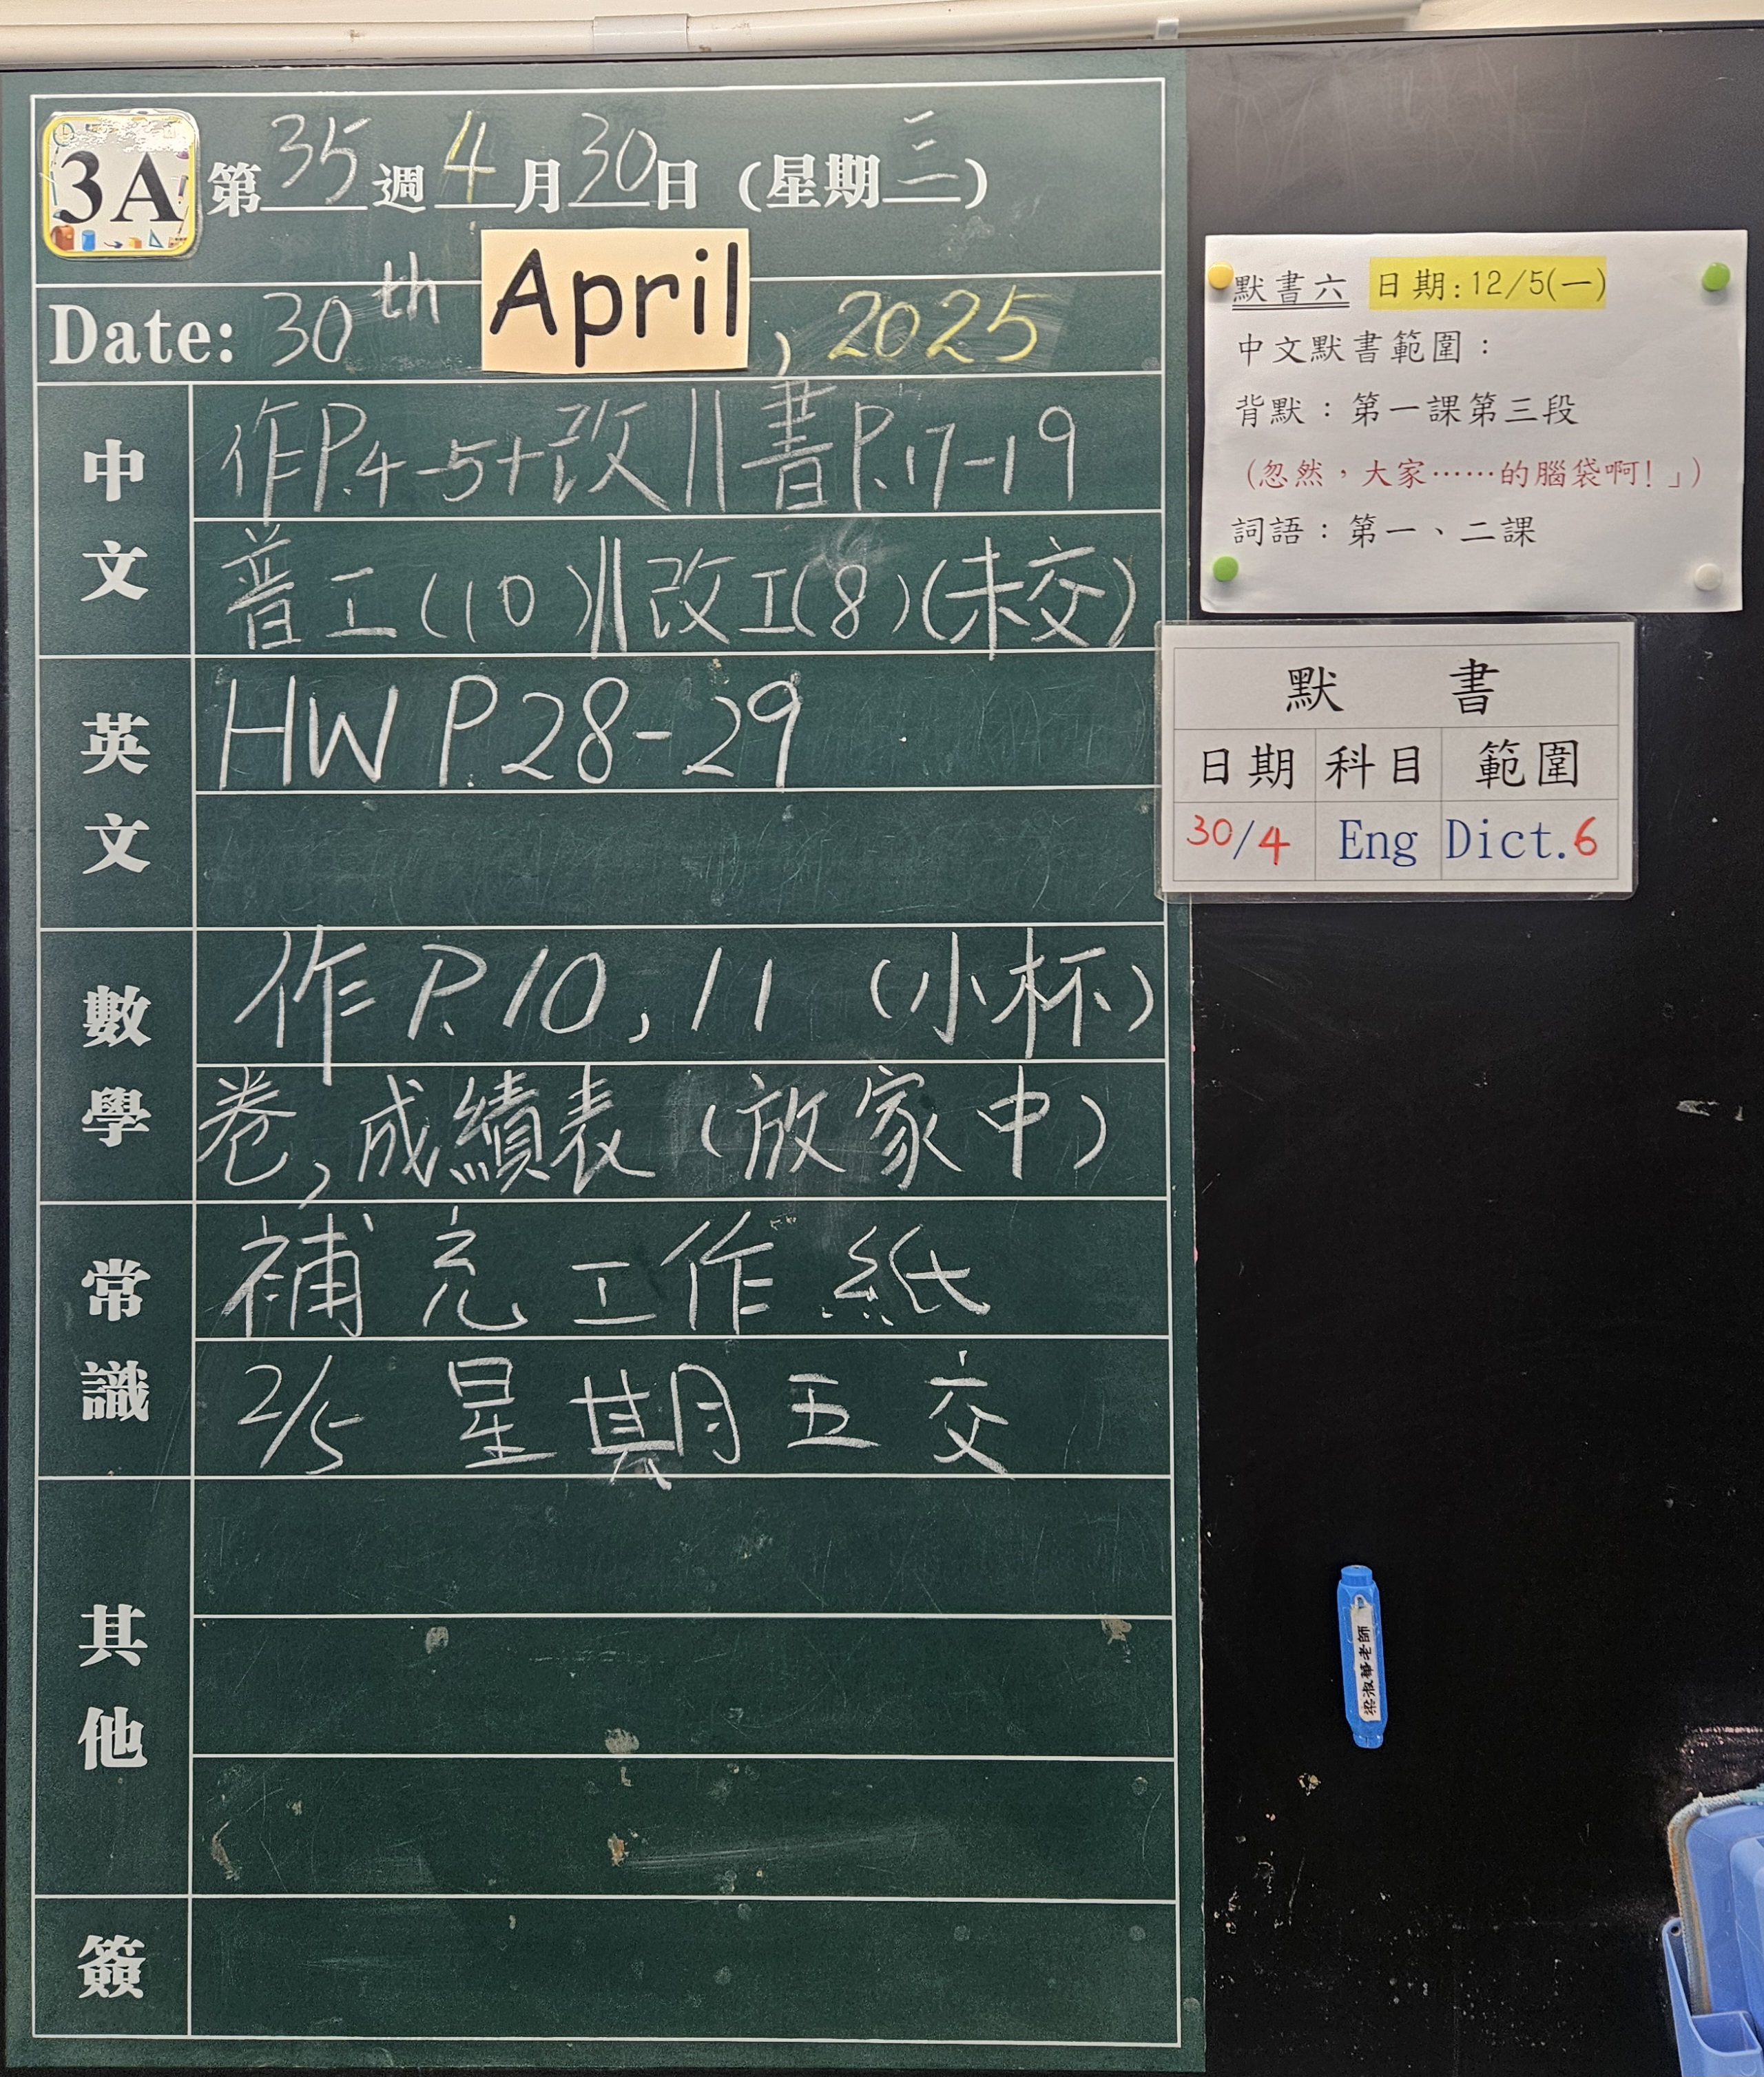 3A 第35週4月30日(星期三)
Date: 30th April, 2025
中文
作P.4-5+改||書P.17-19
普工(10)||改工(8)(未交)
英文
HW P.28-29
數學
作P.10,11 (小杯)
卷,成績表(放家中)
常識
補充工作紙
2/5 星期五交
其他
簽
默書六 日期:12/5(一)
中文默書範圍:
背默:第一課第三段
(忽然,大家……的腦袋啊!」)
詞語:第一、二課
默 書
日期 科目 範圍
30/4 Eng Dict.6
梁淑華老師